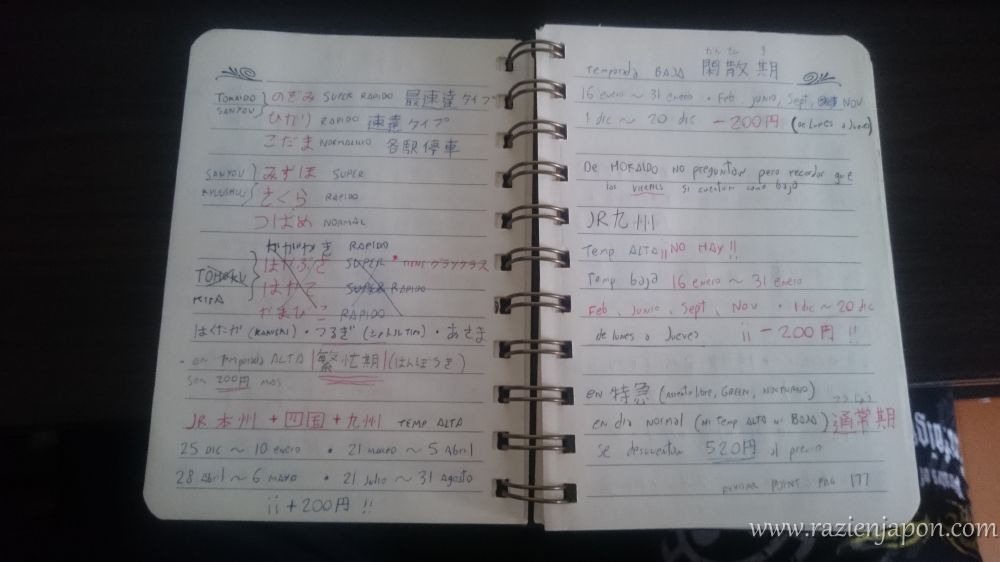 TOKAIDO SANYOU } のぞみ SUPER RAPIDO 最速達タイプ
ひかり RAPIDO 速達タイプ
こだま NORMALITO 各駅停車
SANYOU KYUUSHU } みずほ SUPER
さくら RAPIDO
つばめ NORMAL
TOHOKU } かがやき RAPIDO
はやぶさ SUPER * TIENE グランクラス
はやて SUPER RAPIDO
やまびこ RAPIDO
はくたか • つるぎ • あさま
• en Temporada ALTA 繁忙期 (はんぼうき)
son 200円 mas
JR 本州 + 四国 + 九州 TEMP ALTA
25 DIC ~ 10 enero • 21 marzo ~ 5 Abril
28 Abril ~ 6 mayo • 21 Julio ~ 31 Agosto
¡¡ +200円 !!
Temporada BAJA 閑散期
16 enero ~ 31 enero • Feb, Junio, Sept, NOV
1 dic ~ 20 dic -200円 (de lunes a Jueves)
De HOKAIDO NO preguntan pero recordar que
los viernes si cuentan como baja
JR 九州
Temp ALTA ¡¡ NO HAY !!
Temp baja 16 enero ~ 31 enero
Feb, Junio, Sept, Nov • 1 dic ~ 20 dic
de lunes a Jueves ¡¡ -200円 !!
en 特急 (asiento libre, GREEN, NOCTURNO)
en dia normal (ni Temp ALTA ni BAJA) 通常期
se descuentan 520円 al precio
POINT PAG 177
www.razienjapon.com